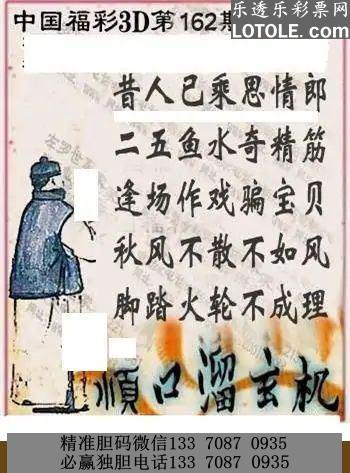 中国福彩3D第162期
乐透乐彩票网
www.LOTOLE.com
昔人已乘思情郎
二五鱼水奇精筋
逢场作戏骗宝贝
秋风不散不如风
脚踏火轮不成理
顺口溜玄机
精准胆码微信133 7087 0935
必赢独胆电话133 7087 0935